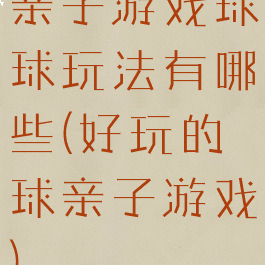 亲子游戏球
球玩法有哪
些(好玩的
球亲子游戏
)